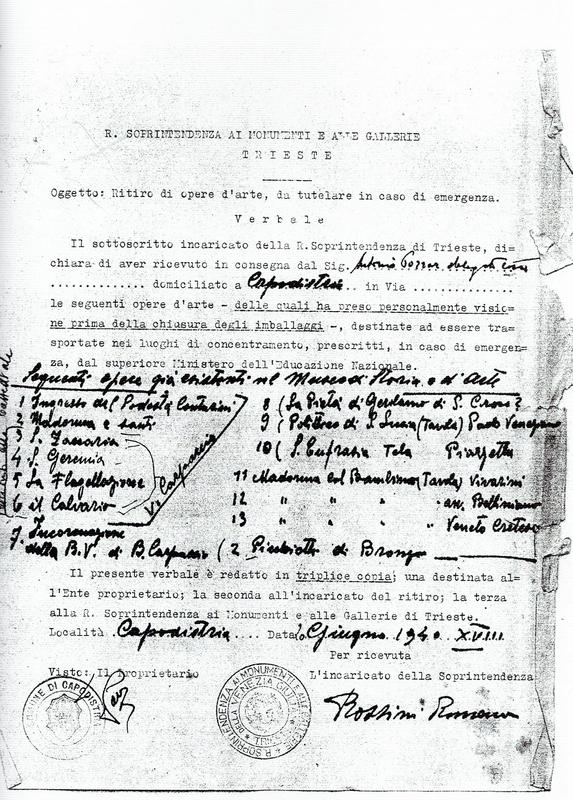 R. SOPRINTENDENZA AI MONUMENTI E ALLE GALLERIE
TRIESTE
Oggetto: Ritiro di opere d'arte, da tutelare in caso di emergenza.
Verbale
Il sottoscritto incaricato della R.Soprintendenza di Trieste, di=
chiara di aver ricevuto in consegna dal Sig. Antonio
.............. domiciliato a Capodistria .. in Via ..............
le seguenti opere d'arte - delle quali ha preso personalmente visio=
ne prima della chiusura degli imballaggi -, destinate ad essere tra=
sportate nei luoghi di concentramento, prescritti, in caso di emergen=
za, dal superiore Ministero dell'Educazione Nazionale.
Seguenti opere già esistenti nel Museo di Storia e d'Arte
1 Ingresso del Podestà Contarini
2 Madonna e santi
3 S. Zaccaria
4 S. Geremia
5 La Flagellazione
6 il Calvario
V. Carpaccio
7. Incoronazione
della B.V. di B. Carpaccio
8 (La Pietà di Gerolamo di S. Croce?
9 (Polittico di S. Lucia (Tavola) Paolo Veneziano
10 (S. Eufrasia Tela Piazzetta
11 Madonna col Bambino (Tavola) Vivarini
12 " " " Belliniano
13 " " " Veneto Cretese
(2 Picchiotti di Bronzo
Il presente verbale è redatto in triplice copia; una destinata al=
l'Ente proprietario; la seconda all'incaricato del ritiro; la terza
alla R. Soprintendenza ai Monumenti e alle Gallerie di Trieste.
Località .Capodistria.... Data 10 Giugno 1940 XVIII
Per ricevuta
Visto: Il Proprietario
L'incaricato della Soprintendenza
COMUNE DI CAPODISTRIA
R. SOPRINTENDENZA AI MONUMENTI E ALLE GALLERIE DELLA VENEZIA GIULIA
Rossini Romano